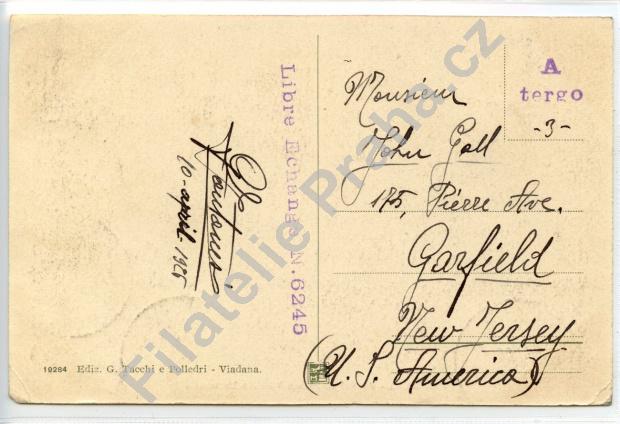 Libre Echange N.6245
10-april-1926
19284 Ediz. G. Tacchi e Polledri - Viadana.
A
tergo
-3-
Monsieur
John Goll
175, Pierre Ave.
Garfield
New Jersey
(U. S. America)
Filatelie Praha.cz